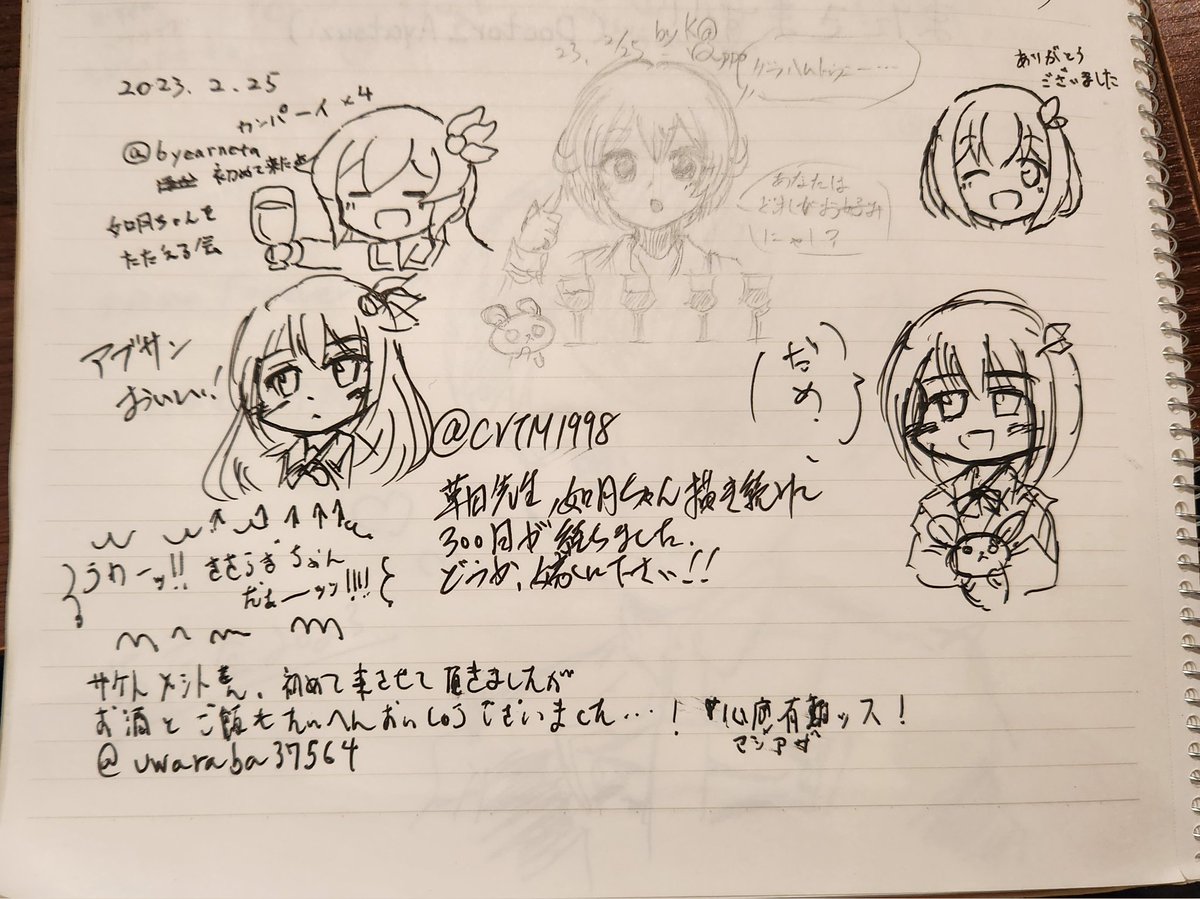 2023. 2. 25
カンパーイ×4
@byearneta
初めて来たよ
如月ちゃんを
たたえる会
23. 2/25 by K@
グラハムトゥニー…
あなたは
どれがお好み
にゃし?
ありがとう
ございました
アブサン
おいしい!
だめ?
@CVTM1998
草田先生,如月ちゃん描き続けに
300日が経ちました.
どうか、嫁ください!!
うわーッ!! きさらぎちゃん
だぁーッッ!!!!
サケトメシトさん、初めて来させて頂きましたが
お酒とご飯もたいへんおいしゅうございました…!
心底有難ッス!
マジアザ
@uwaraba37564